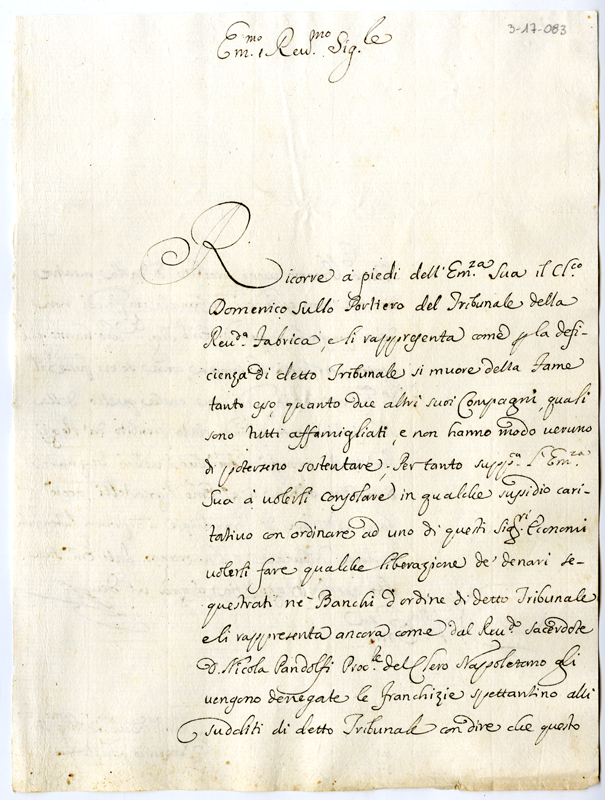 3-17-083
Em.mo e Reu.mo Sig.le
Ricorre a piedi dell'Em.za Sua il Cl.co
Domenico Sullo Portiero del Tribunale della
Reu.da Fabrica, e li rappresenta come p la defi-
cienza di detto Tribunale si muore della fame
tanto esso, quanto due altri suoi Compagni, quali
sono tutti affamigliati, e non hanno modo veruno
di poterno sostentare; Per tanto supp.ca l'Em.za
Sua à volerli consolare in qualche susidio cari-
tativo con ordinare ad uno di questi Sig.ri Economi
volerli fare qualche liberazione de denari se-
questrati ne Banchi d'ordine di detto Tribunale
e li rappresenta ancora come dal Reu.do sacerdote
D. Nicola Pandolfi Proc.le del Clero Napoletano gli
vengono denegate le franchizie spettantino alli
sudditi di detto Tribunale con dire che questo